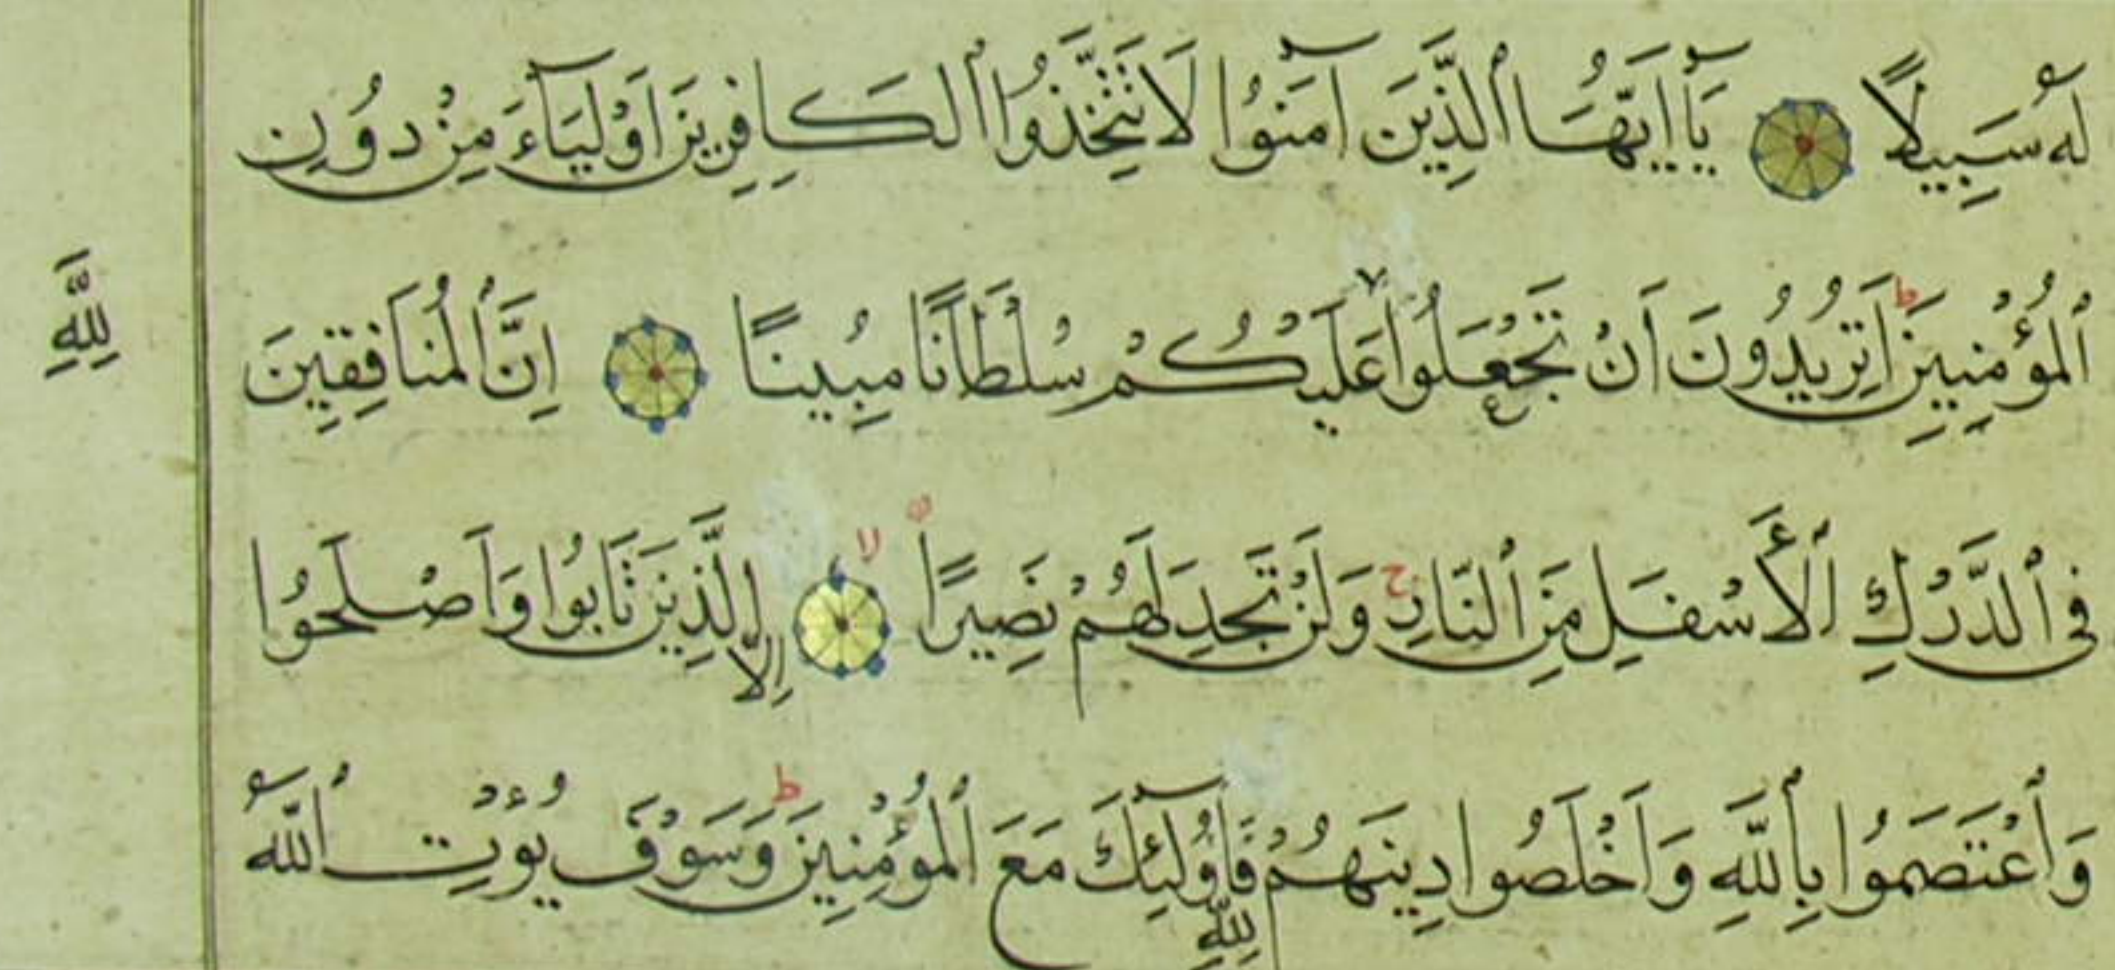 لَهُ سَبِيلًا يَا اَيُّهَا ٱلَّذِينَ آمَنُوا لَا تَتَّخِذُوا ٱلكَافِرِينَ اَوْلِيَآءَ مِنْ دُونِ
ٱلمُؤْمِنِينَ ط اَتُرِيدُونَ اَنْ تَجْعَلُوا عَلَيْكُمْ سُلْطَانًا مُبِينًا اِنَّ ٱلمُنَافِقِينَ
لِلَّهِ
فِى ٱلدَّرْكِ ٱلأَسْفَلِ مِنَ ٱلنَّارِ ج وَلَنْ تَجِدَ لَهُمْ نَصِيرًا لا اِلَّا ٱلَّذِينَ تَابُوا وَاَصْلَحُوا
وَٱعْتَصَمُوا بِٱللَّهِ وَاَخْلَصُوا دِينَهُمْ فَأُولَٰئِكَ مَعَ ٱلمُؤْمِنِينَ ط وَسَوْفَ يُؤْتِ ٱللَّهُ
لِلَّهِ